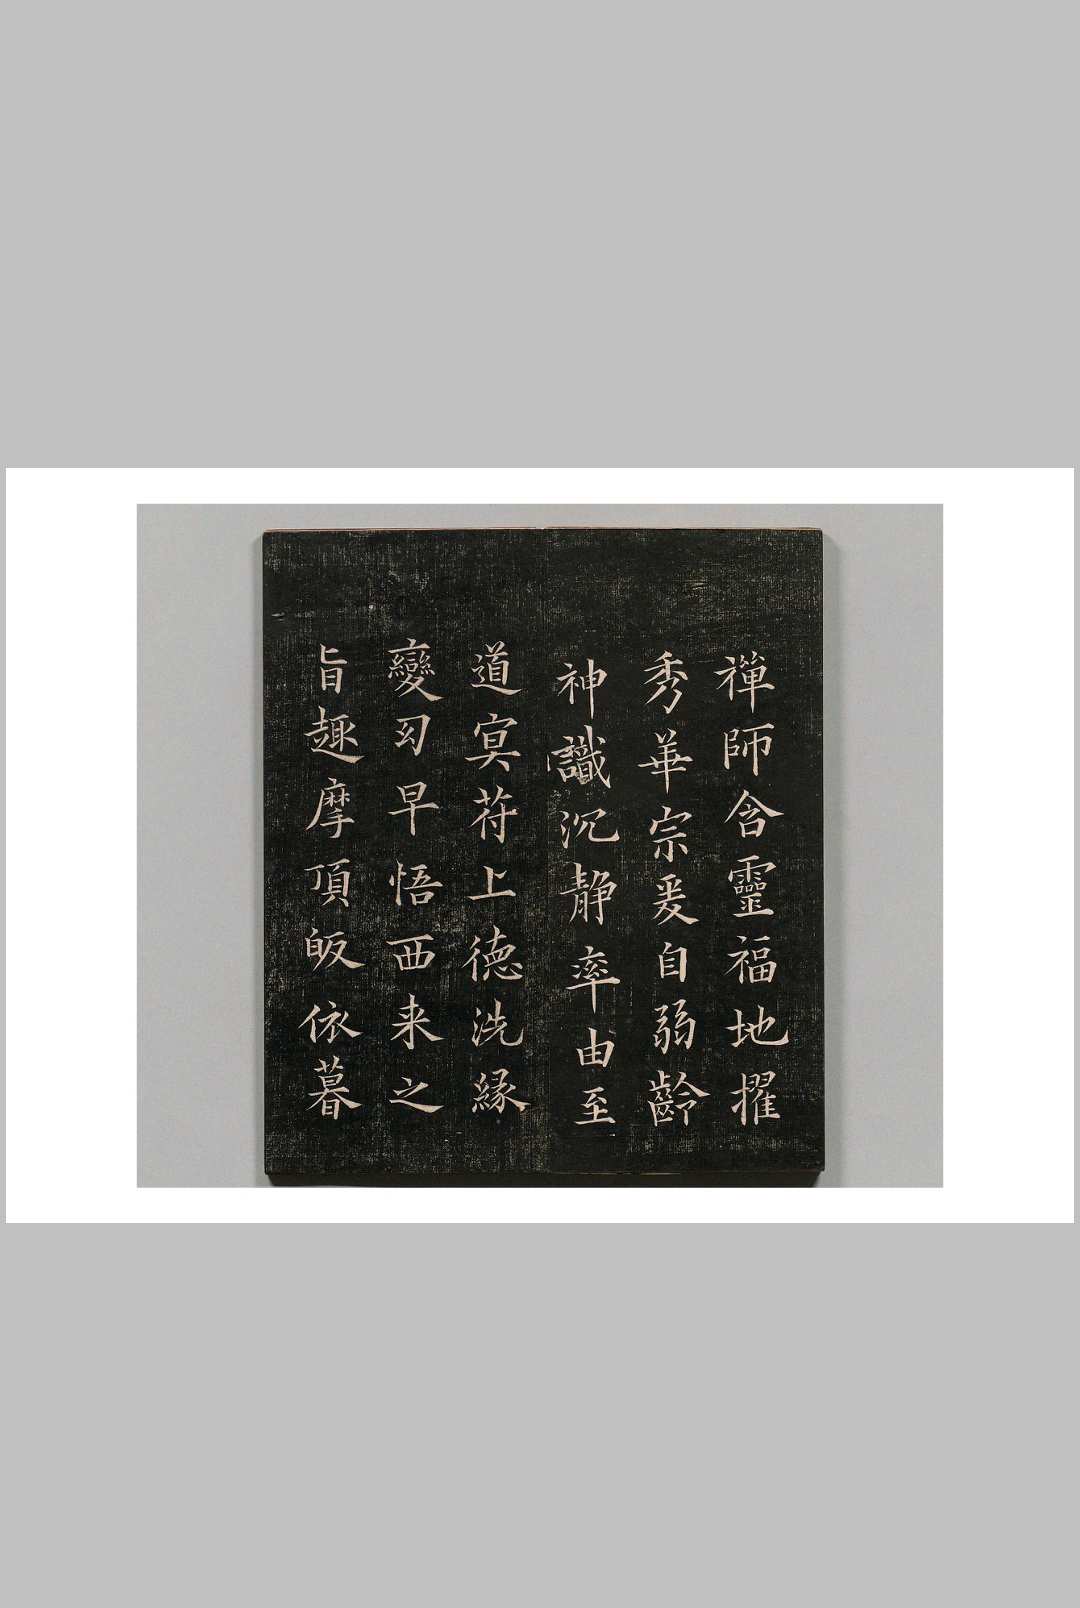 禪師含靈福地擢
秀華宗爰自弱齡
神識沉静率由至
道㝠苻上德洗緣
變幻早悟西来之
旨趣摩頂皈依暮